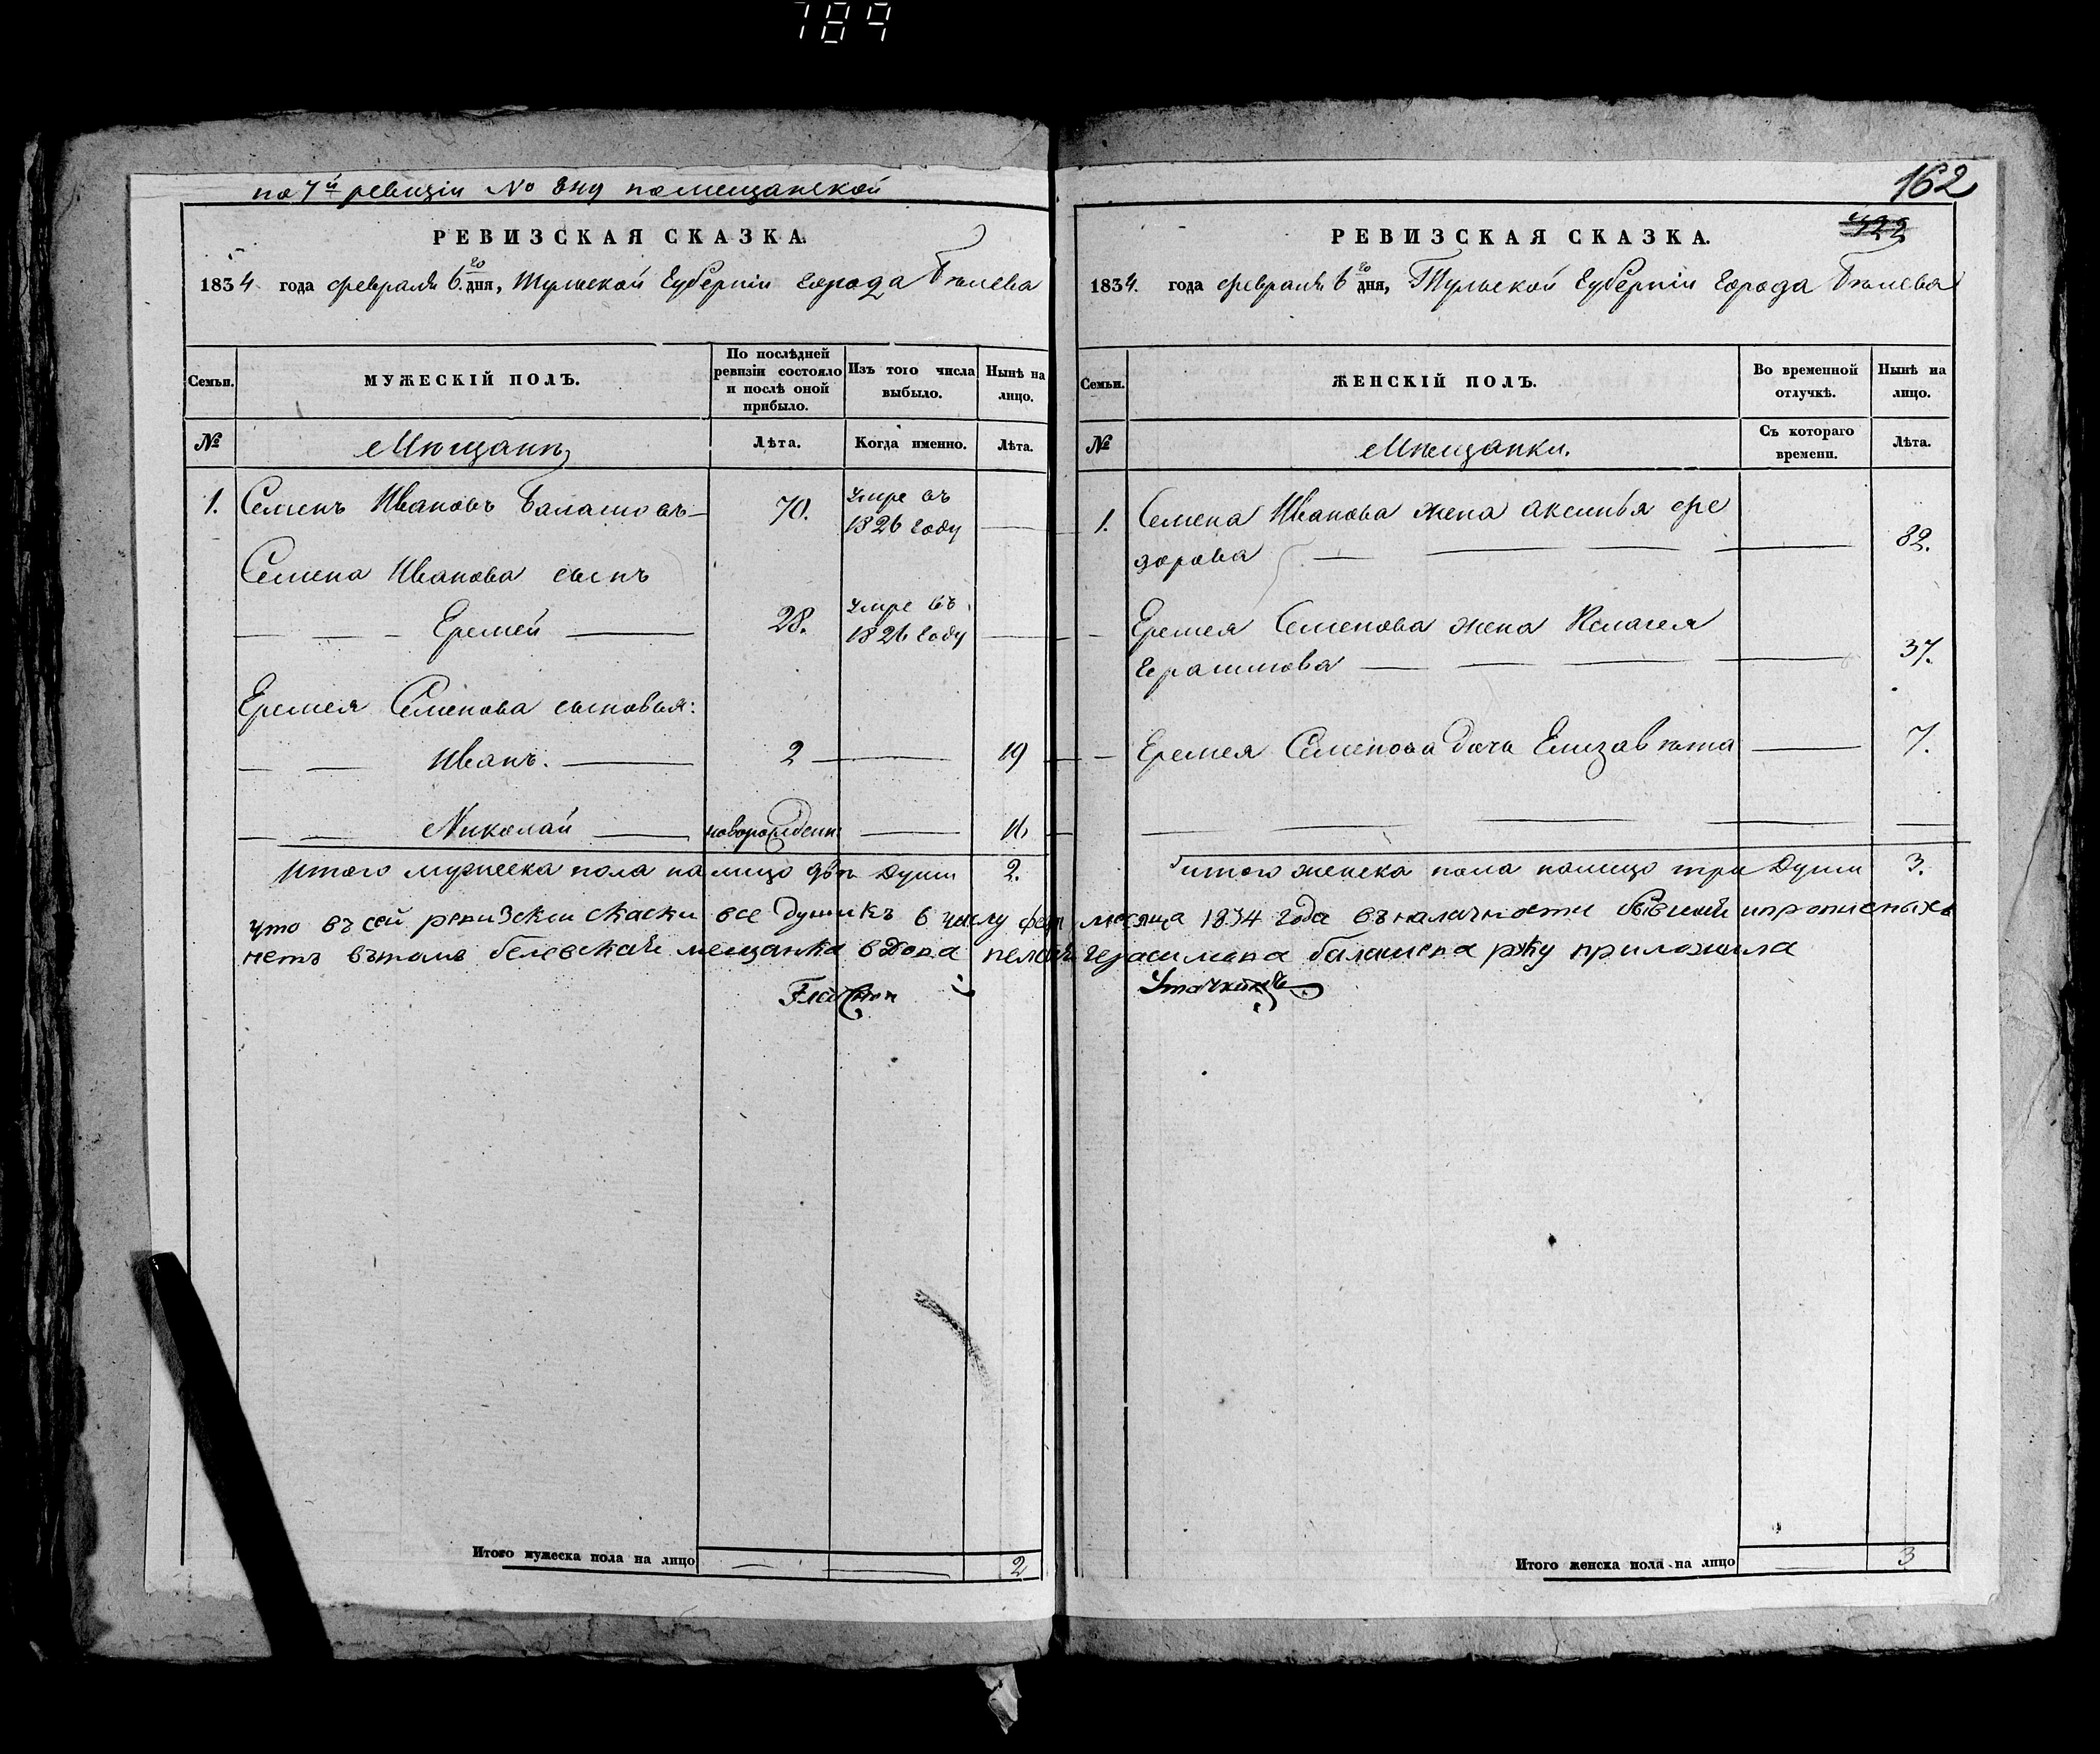 789
по 7й ревизіи № 849 помещанской
РЕВИЗСКАЯ СКАЗКА.
1834 года февраля 6.го дня, Тульской Губерніи города Бѣлева
Семьи.
МУЖЕСКІЙ ПОЛЪ.
По послѣдней ревизіи состояло и послѣ оной прибыло.
Изъ того числа выбыло.
Нынѣ на лицо.
№
Мѣщанѣ
Лѣта.
Когда именно.
Лѣта.
1. Семенъ Ивановъ Балашовъ 70. умре въ
1826 году
Семена Иванова сынъ
Еремей 28. умре въ
1826 году
Еремея Семенова сыновья:
Иванъ. 2 19
Николай новорожденн 11.
Итого мужеска пола на лицо двѣ души 2.
Итого мужеска пола на лицо 2
162
422
РЕВИЗСКАЯ СКАЗКА.
1834. года февраля 6го дня, Тульской Губерніи Города Бѣлева
Семьи.
ЖЕНСКІЙ ПОЛЪ.
Во временной отлучкѣ.
Нынѣ на лицо.
№
Мѣщанки.
Съ котораго времени.
Лѣта.
1. Семена Иванова жена Аксинья Фе
дорова 82.
Еремея Семенова жена Пелагея
Герасимова 37.
Еремея Семенова дочь Елизавѣта 7.
Итого женска пола налицо три Души 3.
что въ сей ревизскои скаски все души къ 6 числу фев месяца 1834 года въ наличности
нетъ въ томъ белевская мещанка вдова Герасимова балашева руку приложила
Итого женска пола на лицо 3